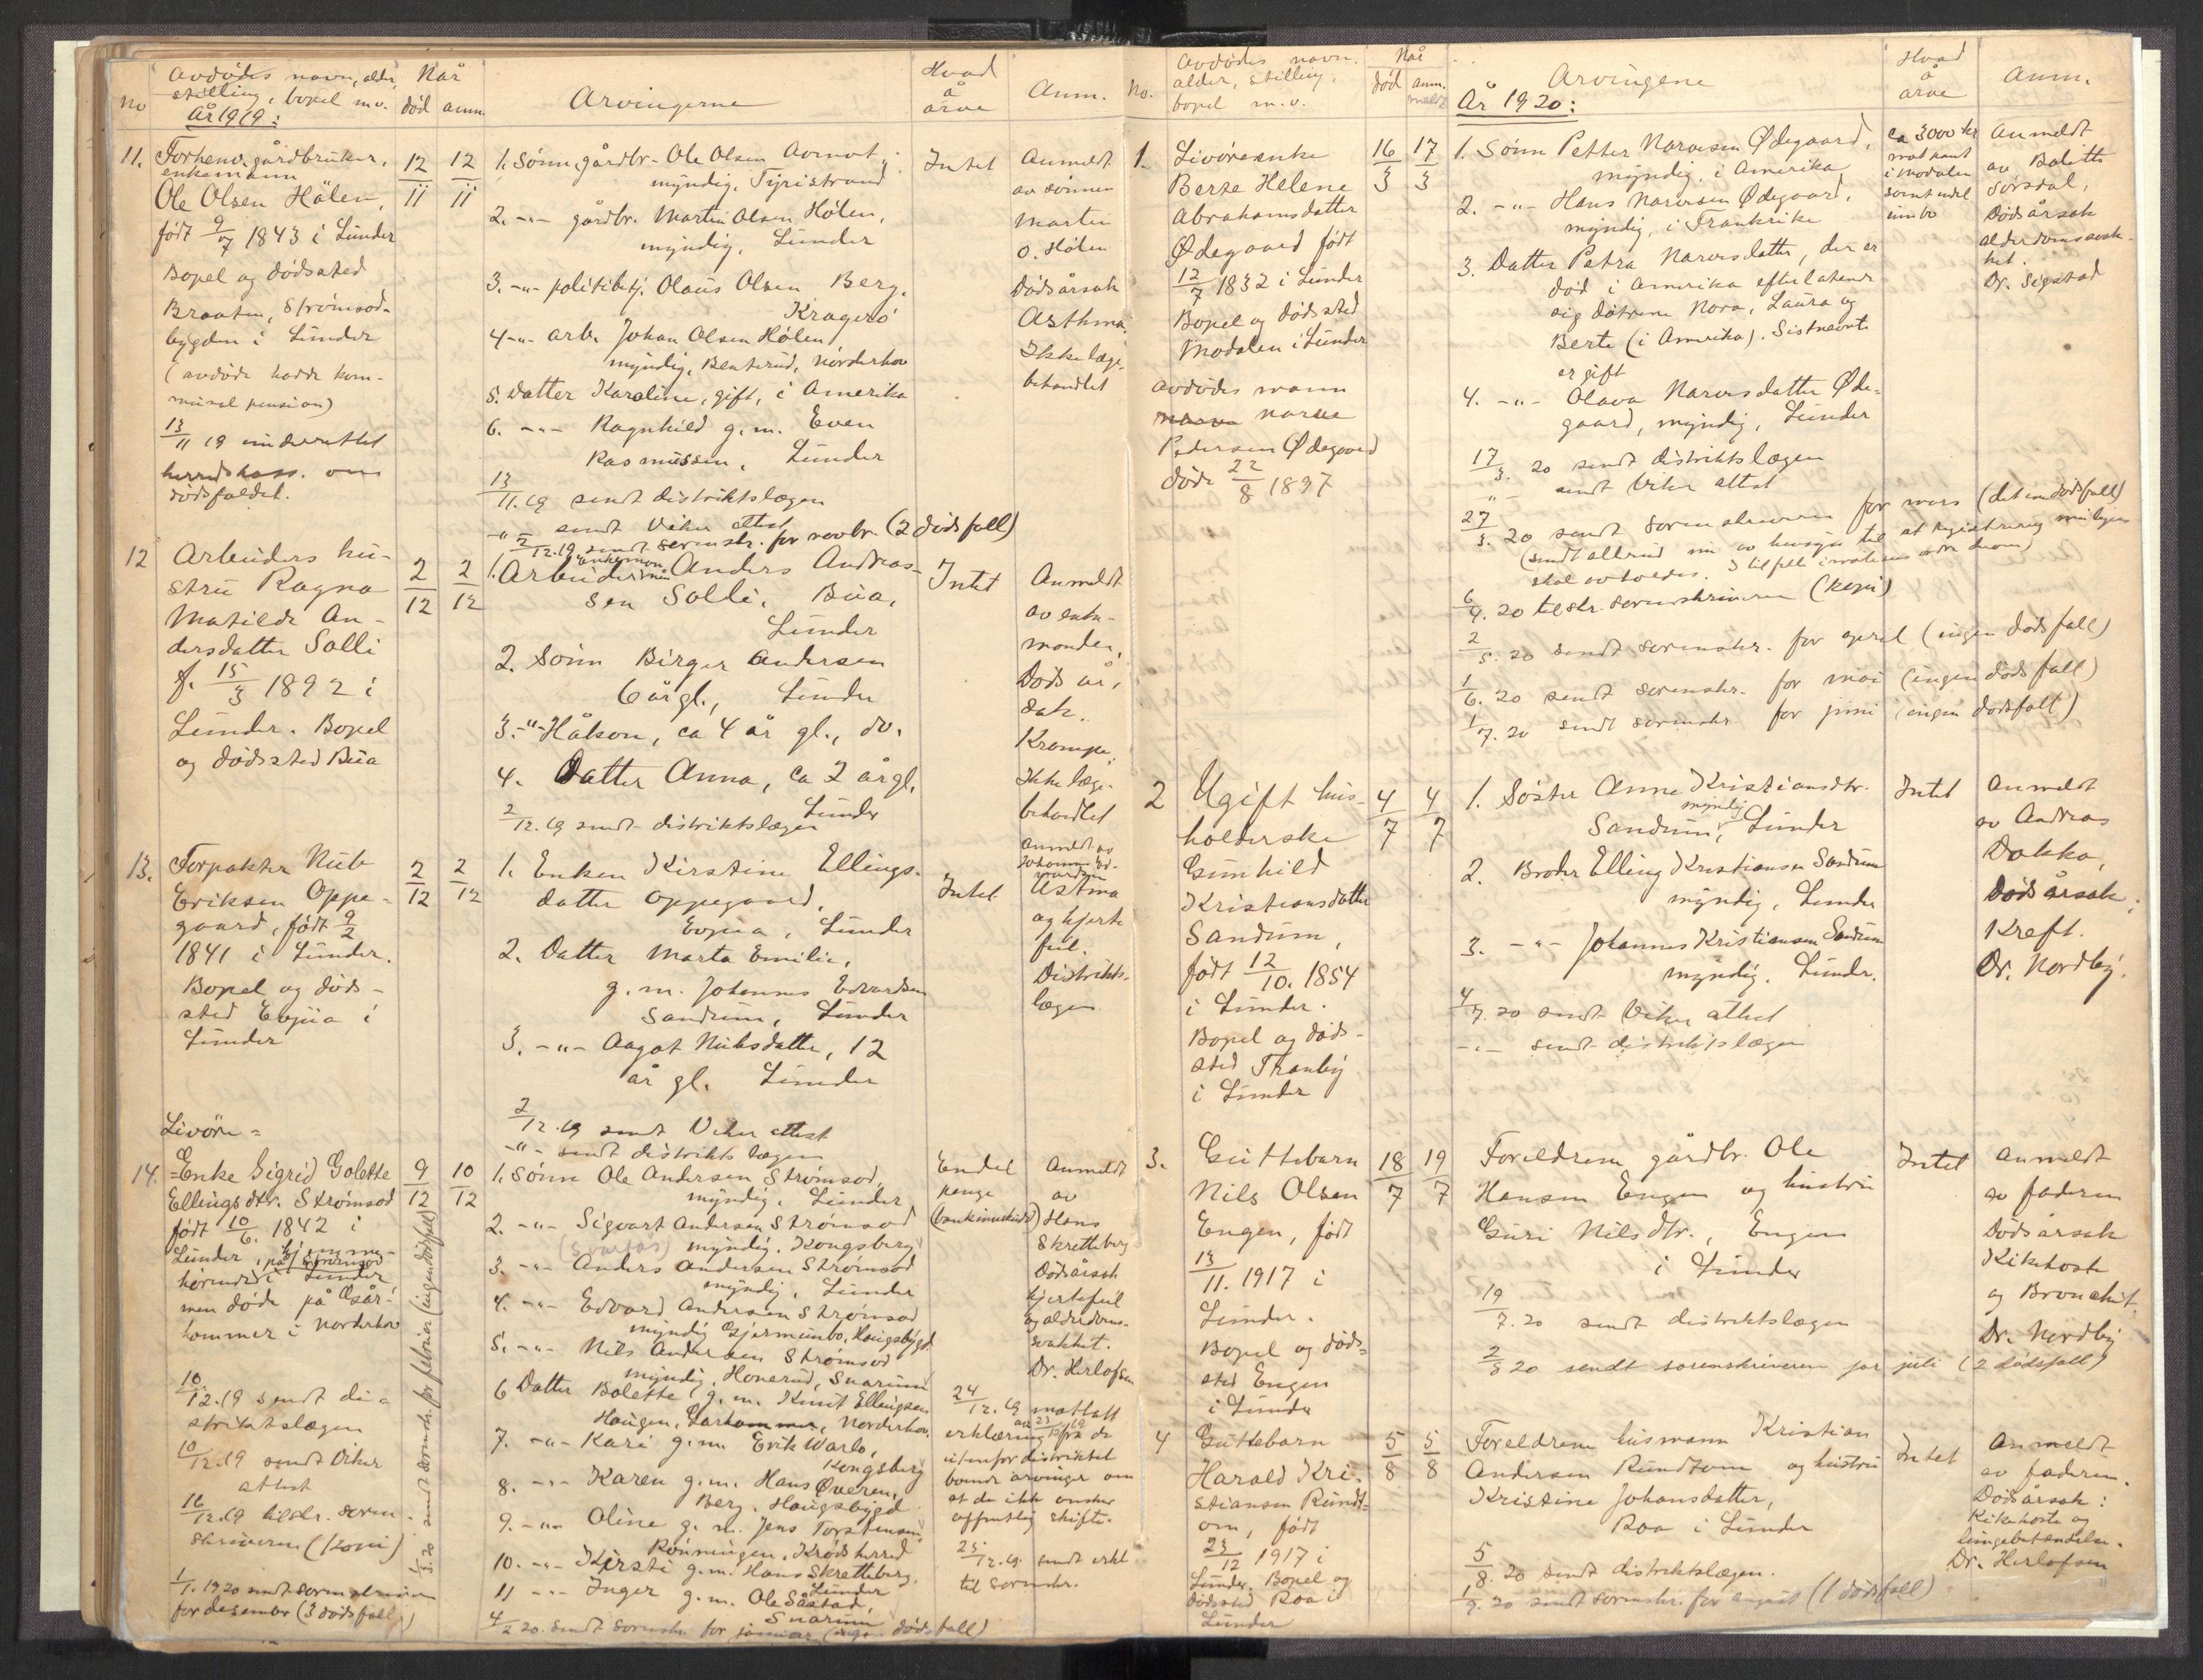 No
Avdødes navn, alder,
stilling, bopel m.v.
År 1919:
Når
død
anm.
Arvingerne
Hvad
å
arve
Anm.
11.
Forhenv. gårdbruker,
enkemann
Ole Olsen Hólen,
født 9/7 1843 i Lunder
Bopel og dødssted
Braaten, Strømsod-
bygden i Lunder
(avdøde hadde kom-
munal pension)
13/11 19 underrettet
herredskass. om
dødsfaldet.
12/11
12/11
1. Sønn gårdbr. Ole Olsen
myndig, Tyristrand
2. -"- gårdbr. Martin Olsen Hólen,
myndig, Lunder
3. -"- politibetj. Olaus Olsen Berg,
Kragerø
4 -"- arb. Johan Olsen Hólen
myndig, Benterud, Norderhov
5. Datter Karoline, gift, i Amerika
6. -"- Ragnhild g.m. Even
Rasmussen, Lunder
13/11.19 sendt distriktslægen
-"- sendt Viker attest
2/12.19 sendt sorenskr. for novbr. (2 dødsfall)
Intet
Anmeldt
av sønnen
Martin
O. Hólen
Dødsårsak
Asthma.
Ikke læge-
behandlet
12
Arbeiders hu-
stru Ragna
Matilde An-
dersdatter Solli
f. 15/3 1892 i
Lunder. Bopel
og dødssted Bua
2/12
2/12
1. Arbeider Enkeman Anders Andrea-
sen Solli, Bua,
Lunder
2. Sønn Birger Andersen
6 år gl., Lunder
3. -"- Håkon, ca 4 år gl., do.
4. Datter Anna, ca 2 år gl,
Lunder
2/12.19 sendt distriktslægen
Intet
Anmeldt
av enke-
manden,
Døds år,
sak.
Krampe,
Ikke læge-
behandlet
13.
Forpakter Nub
Eriksen Oppe-
gaard, født 9/2
1841 i Lunder.
Bopel og døds-
sted Evjua i
Lunder
2/12
2/12
1. Enken Kirstine Ellings-
datter Oppegaard,
Evjua, Lunder
2. Datter Marta Emilie,
g.m. Johannes Edvardsen
Sandum, Lunder
3. -"- Aagot Nubsdatter, 12
år gl. Lunder
2/12.19 sendt Viker attest
-"- sendt distriktslægen
Intet
Anmeldt av
Johannes Ed-
vardsen
Astma
og hjerte
feil.
Distrikts-
lægen
14.
Livøre-
=Enke Sigrid Golette
Ellingsdtr. Strømsod
født 10/6. 1842 i
Lunder, på Strømsod
Hjemme-
hørende i Lunder,
men døde på Åsår-
hommer i Norderhov
10/12.19 sendt di-
striktslægen
10/12.19 sendt Viker
attest
16/12.19 tilskr. soren-
skriveren (Kopi)
1/1. 1920 sendt sorenskriveren
for desember (3 dødsfall)
9/12
10/12
1/3.20 sendt sorenskr. for februar (ingen dødsfall)
1. Sønn Ole Andersen Strømsod,
myndig, Lunder
2. -"- Sigvart Andersen Strømsod
myndig, Kongsberg
3. -"- Anders Andersen Strømsod
myndig, Lunder
4. -"- Edvard Andersen Strømsod
myndig Gjermunbo, Haugsbygd
5. -"- Nils Andersen Strømsod
myndig, Honerud, Snarum
6 Datter Bolette g.m. Knut Ellingsen
Haugen, Norderhov.
7. -"- Kari g.m. Erik Warlo,
Kongsberg
8. -"- Karen g.m. Hans Øveren,
Berg, Haugsbygd
9. -"- Oline g.m. Jens Torstensen
Rønningen, Krødsherred
10. -"- Kirsti g.m. Hans Skretteberg,
Lunder
11 -"- Inger g.m. Ole Såstad,
Snarum
4/2 20. sendt sorenskr. for januar (ingen dødsfall)
Endel
penge
(bankinnskudd)
24/12.19 mottatt
erklæring fra de
utenfor distriktet
boende arvinger om
at de ikke ønsker
offentlig skifte.
25/12.19. sendt erkl.
til sorenskr.
Anmeldt
av
Hans
Skretteberg
Dødsårsak
hjertefeil
og alderdoms-
svakhet.
Dr. Herlofsen
No.
Avdødes navn,
alder, stilling,
bopel m.v.
Når
død
anm.
meldt
Arvingene
År 1920:
Hvad
å
arve
Anm.
1.
Livøreenke
Berte Helene
Abrahamsdatter
Ødegaard født
12/7 1832 i Lunder
Bopel og dødssted
Modalen i Lunder
avdødes mann
Narve
Pedersen Ødegaard
døde 22/8 1897
16/3
17/3
1. Sønn Petter Narvesen Ødegaard,
myndig, i Amerika
2. -"- Hans Narvesen Ødegaard,
myndig, i Frankrike
3. Datter Petra Narvesdatter, der er
død i Amerika efterlatende
sig døtrene Nora, Laura og
Berte (i Amerika). Sistnevnte
er gift
4. -"- Olava Narvesdatter Øde-
gaard, myndig, Lunder
17/3. 20 sendt distriktslægen
" - sendt Viker attest
27/3. 20 sendt sorenskriveren for mars (det en dødsfall)
(sendt allerud nu av hensyn til at registrering muligens
skal avholdes.
6/4. 20 tilskr. sorenskriveren (kopi)
2/5. 20 sendt sorenskr. for april (ingen dødsfall)
1/6. 20 sendt sorenskr. for mai (ingen dødsfall)
1/7. 20 sendt sorenskr. for juni (ingen dødsfall)
ca 3000 kr
mot pant
i Modalen
samt endel
innbo
Anmeldt
av Bolette
Sørsdal,
Dødsårsak
alderdomssvak-
het.
Dr. Sigstad
2
Ugift hus-
holderske
Gunhild
Kristiansdatter
Sandum,
født 12/10. 1854
i Lunder.
Bopel og døds-
sted Tranby
i Lunder
4/7
4/7
1. Søster Anne Kristiansdtr.
myndig
Sandum, Lunder
2. Broder Elling Kristiansen Sandum
myndig, Lunder
3. -"- Johannes Kristiansen Sandum
myndig, Lunder.
4/7.20 sendt Viker attest
-"- sendt distriktslægen
Intet
Anmeldt
av Andreas
Dokka,
Dødsårsak:
Kreft.
Dr. Nordby.
3.
Guttebarn
Nils Olsen
Engen, født
13/11. 1917 i
Lunder.
Bopel og døds-
sted Engen
i Lunder
18/7
19/7
Foreldrene gårdbr. Ole
Hansen Engen og hustru
Guri Nilsdtr., Engen
i Lunder
19/7.20 sendt distriktslægen
2/8 20 sendt sorenskriveren for juli (2 dødsfall)
Intet
Anmeldt
av faderen
Dødsårsak
Kikhoste
og Bronchit.
Dr. Nordby
4
Guttebarn
Harald Kri-
stiansen Rundt-
om, født
23/12 1917 i
Lunder. Bopel og
dødssted Roa i
Lunder
5/8
5/8
Foreldrene husmann Kristian
Andersen Rundtom og hustru
Kristine Johansdatter,
Roa i Lunder
5/8. 20 sendt distriktslægen.
1/9. 20 sendt sorenskr. for august (1 dødsfall)
Intet
Anmeldt
av faderen.
Dødsårsak:
Kikhoste og
lungebetændelse.
Dr. Herlofsen